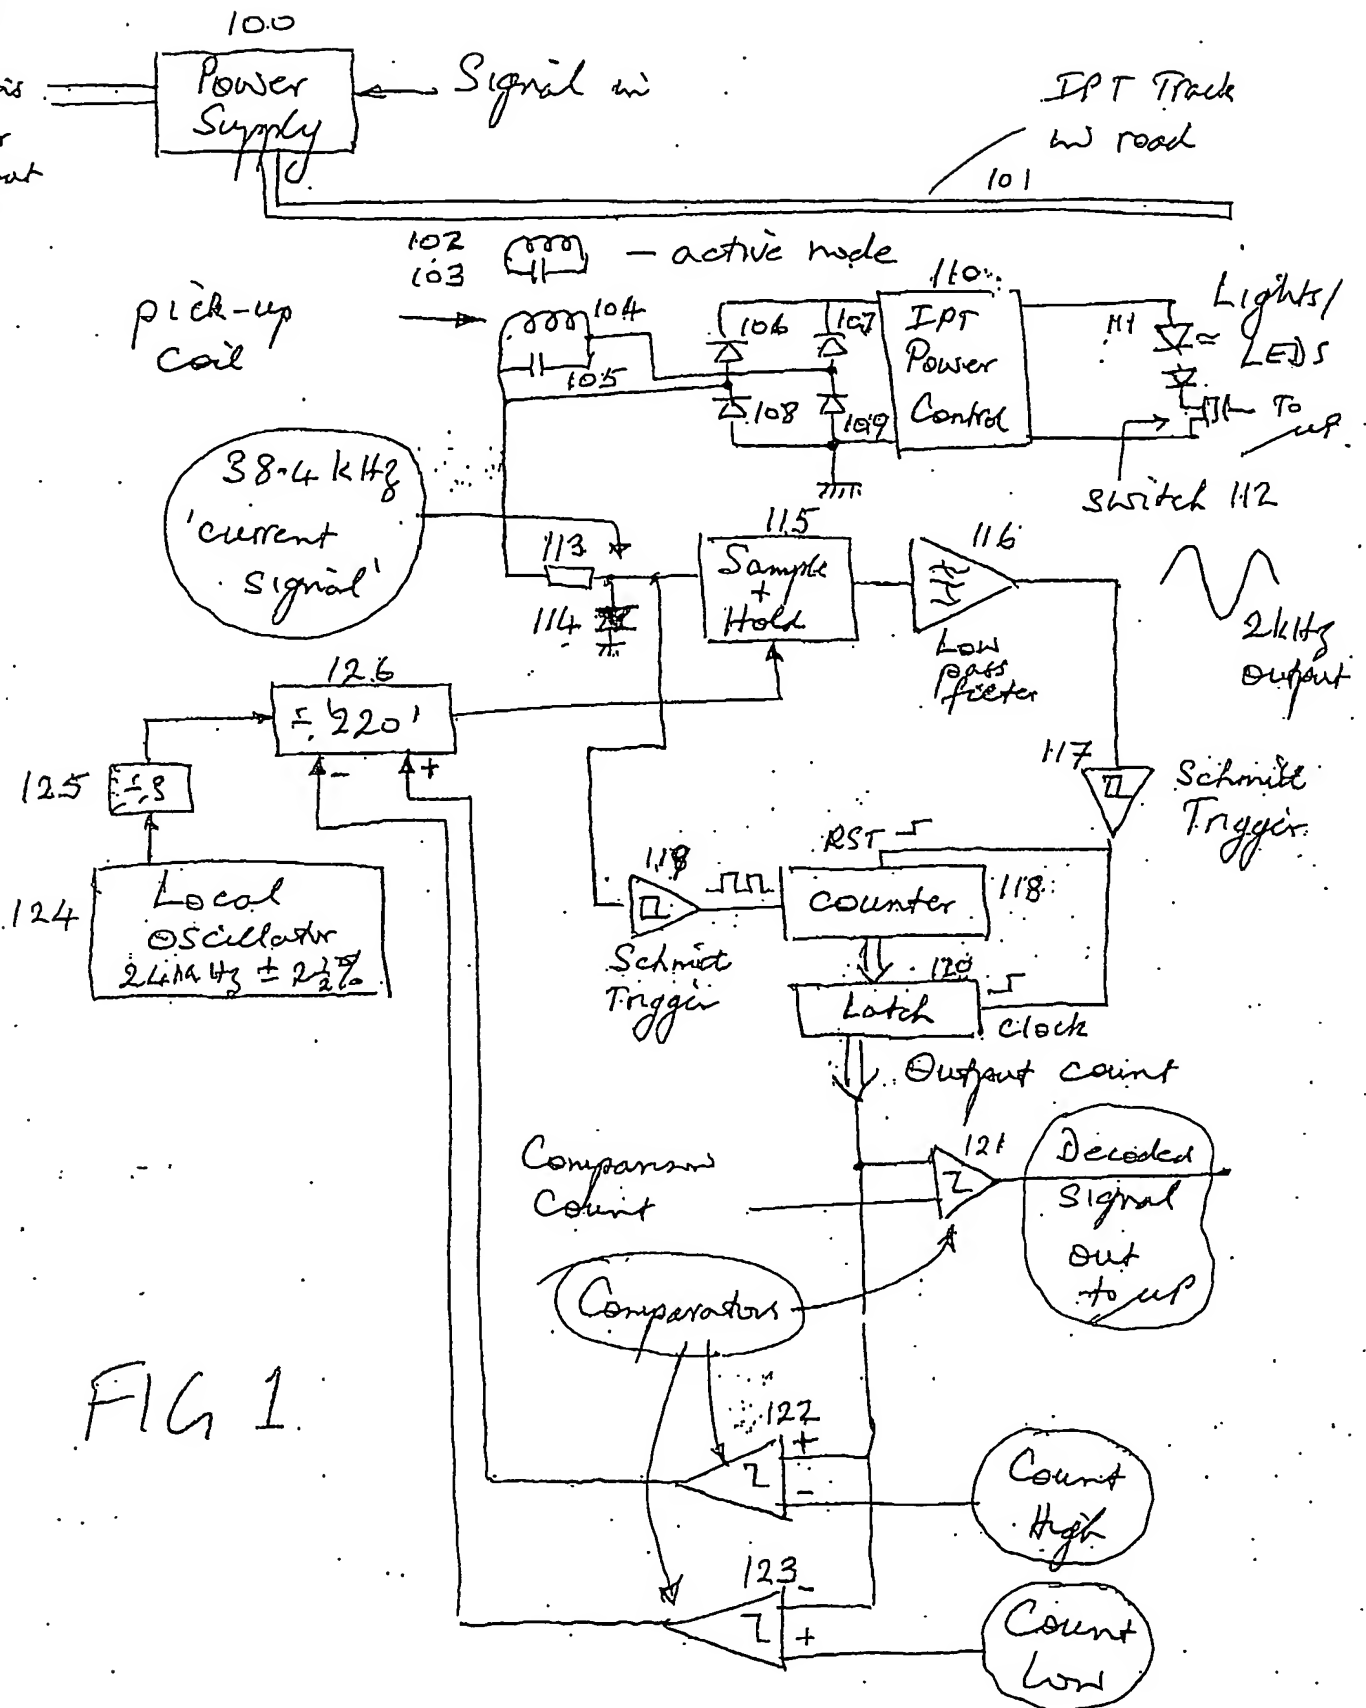 100
Power
Supply
Signal in
IPT Track
in road
101
102
103
- active node
pick-up
coil
104
105
106
107
108
109
110
IPT
Power
Control
111
Lights/
LEDS
To
uP
switch 112
38.4 kHz
'current
signal'
113
114
115
Sample
+
Hold
116
Low
pass
filter
2kHz
output
126
÷ '220'
-
+
125
124
Local
oscillator
24MHz ± 2½%
117
Schmitt
Trigger
RST
119
Schmitt
Trigger
counter
118
120
Latch
clock
Output count
Comparison
Count
121
Decoded
Signal
out
to uP
Comparators
FIG 1.
122
+
-
Count
High
123
-
+
Count
Low